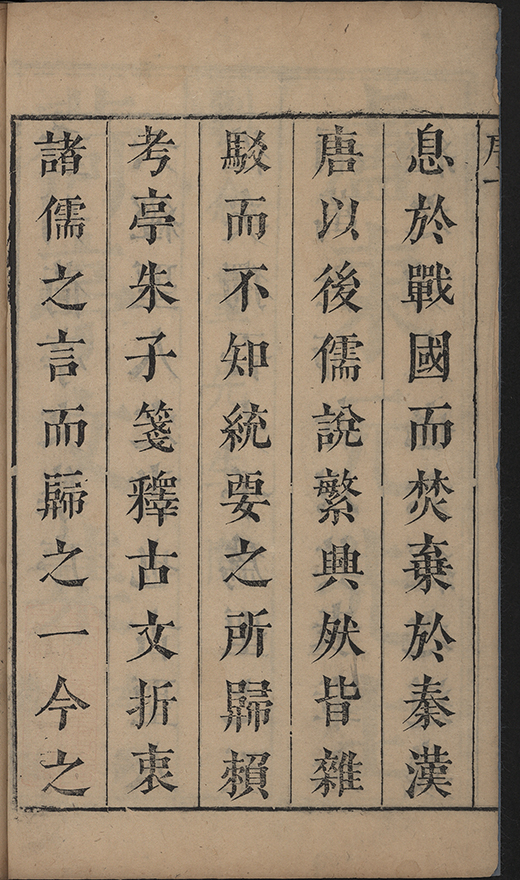 序一
息於戰國而焚棄於秦漢
唐以後儒說繁興然皆雜
駁而不知統要之所歸賴
考亭朱子箋釋古文折衷
諸儒之言而歸之一今之